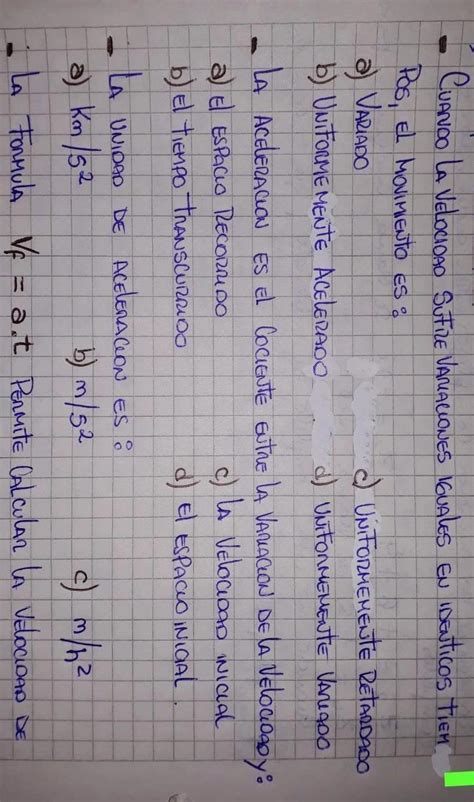 - Cuando la velocidad sufre variaciones iguales en identicos tiem
pos, el movimiento es:
a) Variado c) Uniformemente retardado
b) Uniformemente acelerado d) Uniformemente variado
- La aceleracion es el cociente entre la variacion de la velocidad y:
a) El espacio recorrido c) La velocidad inicial
b) El tiempo transcurrido d) El espacio inicial.
- La unidad de aceleracion es:
a) Km/s² b) m/s² c) m/h²
- La formula Vf = a.t permite calcular la velocidad de